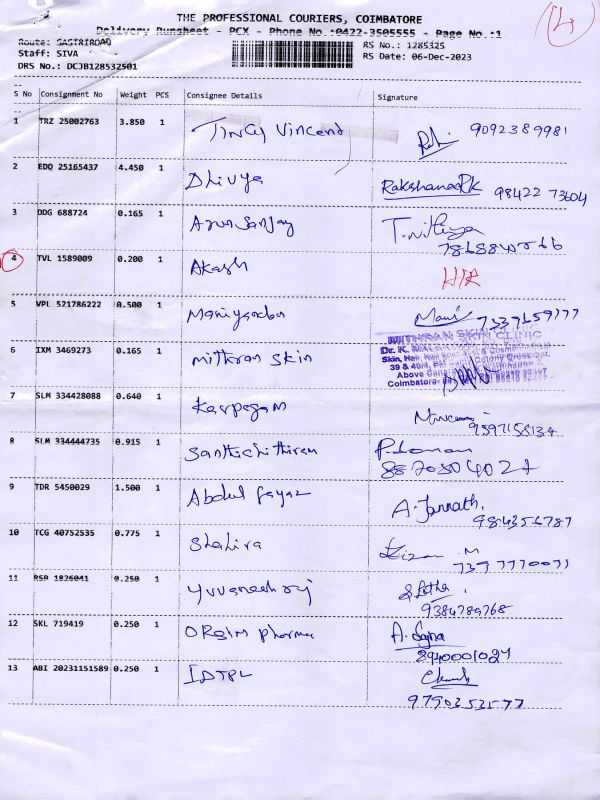 THE PROFESSIONAL COURIERS, COIMBATORE
Delivery Runsheet - PCX - Phone No.:0422-3505555 - Page No.:1
Route: SASTRIROAD
RS No.: 1285325
Staff: SIVA
RS Date: 06-Dec-2023
DRS No.: DCJB128532501
S No Consignment No Weight PCS Consignee Details Signature
1 TRZ 25002763 3.850 1 Vincent 9092389981
2 EDQ 25165437 4.450 1 Dhivya Rakshanaa RK 98422 73604
3 DDG 688724 0.165 1 Arun Sanjay T. Nithya
4 TVL 1589009 0.200 1 Akash
5 VPL 521786222 0.500 1 Mani 7339659177
6 IXM 3469273 0.165 1 mithran skin
MITHRAN SKIN CLINIC
Dr. K.
Coimbatore
7 SLM 334428088 0.640 1 Karpagam
8 SLM 334444735 0.915 1 Santhichithiram
8870804027
9 TDR 5450029 1.500 1 Abdul fayaz A. Jannath.
984356787
10 TCG 40752535 0.775 1 Shahira
7397770071
11 RSP 1826041 0.250 1 Yuvaneshraj S. Latha
9384789768
12 SKL 719419 0.250 1 Pharma A. Sajna
8940001027
13 ABI 20231151589 0.250 1 IDTPL
9790353577